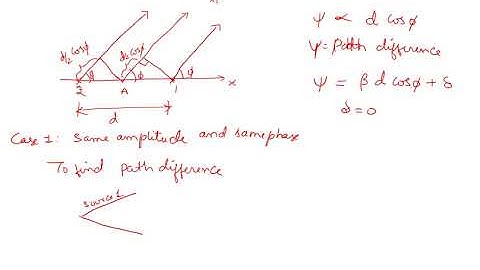 d/2 cosφ
d/2 cosφ
φ
φ
φ
2
A
1
x
d
ψ ∝ d cosφ
ψ = Path difference
ψ = β d cosφ + δ
δ = 0
Case 1: Same amplitude and same phase
To find path difference
Source 1